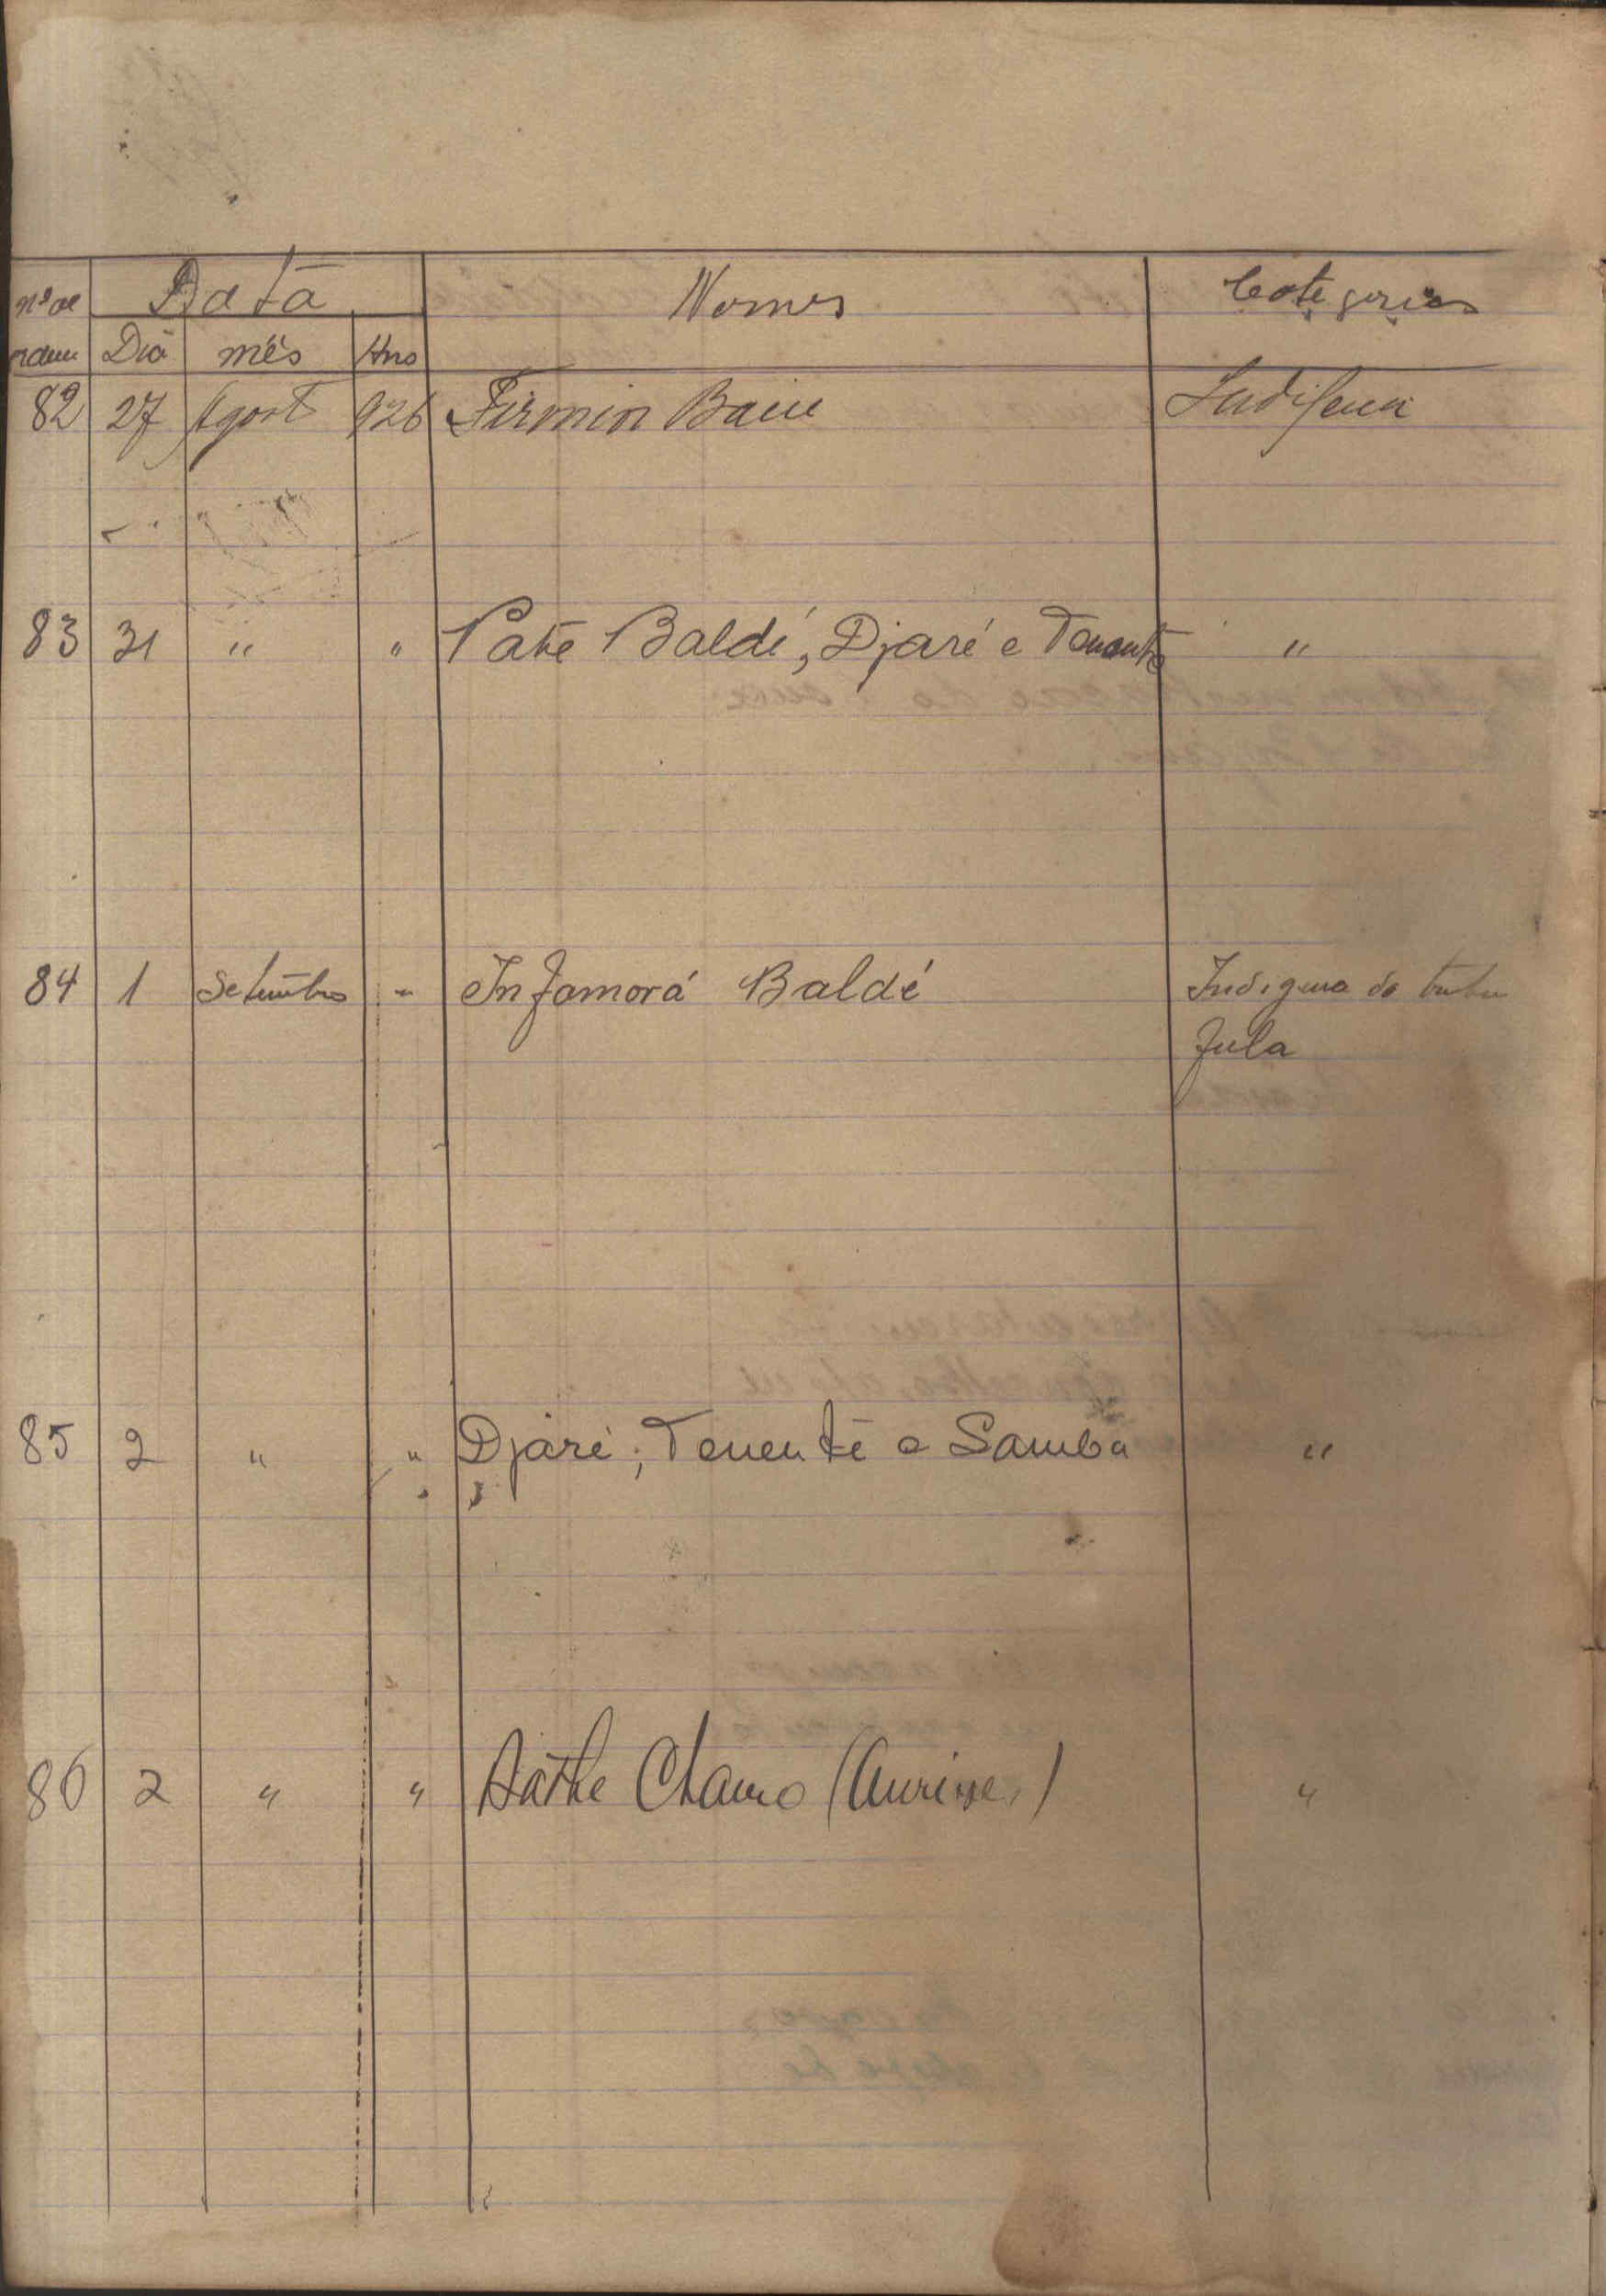 nº de Data Nomes Categorias
ordem Dia mês Ano
82 27 Agost 926 Firmin Indigena
83 31 " " Paté Baldé, Djaré e Tenente "
84 1 Setembro " Infamorá Baldé Indigena da tribu
fula
85 2 " " Djaré, Tenente e Samba "
86 2 " " "